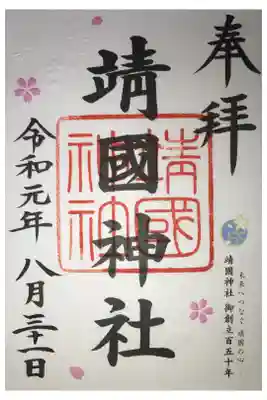 奉拝
靖國神社
靖國神社
令和元年 八月三十一日
未来へつなぐ 靖國の心
靖國神社 御創立百五十年